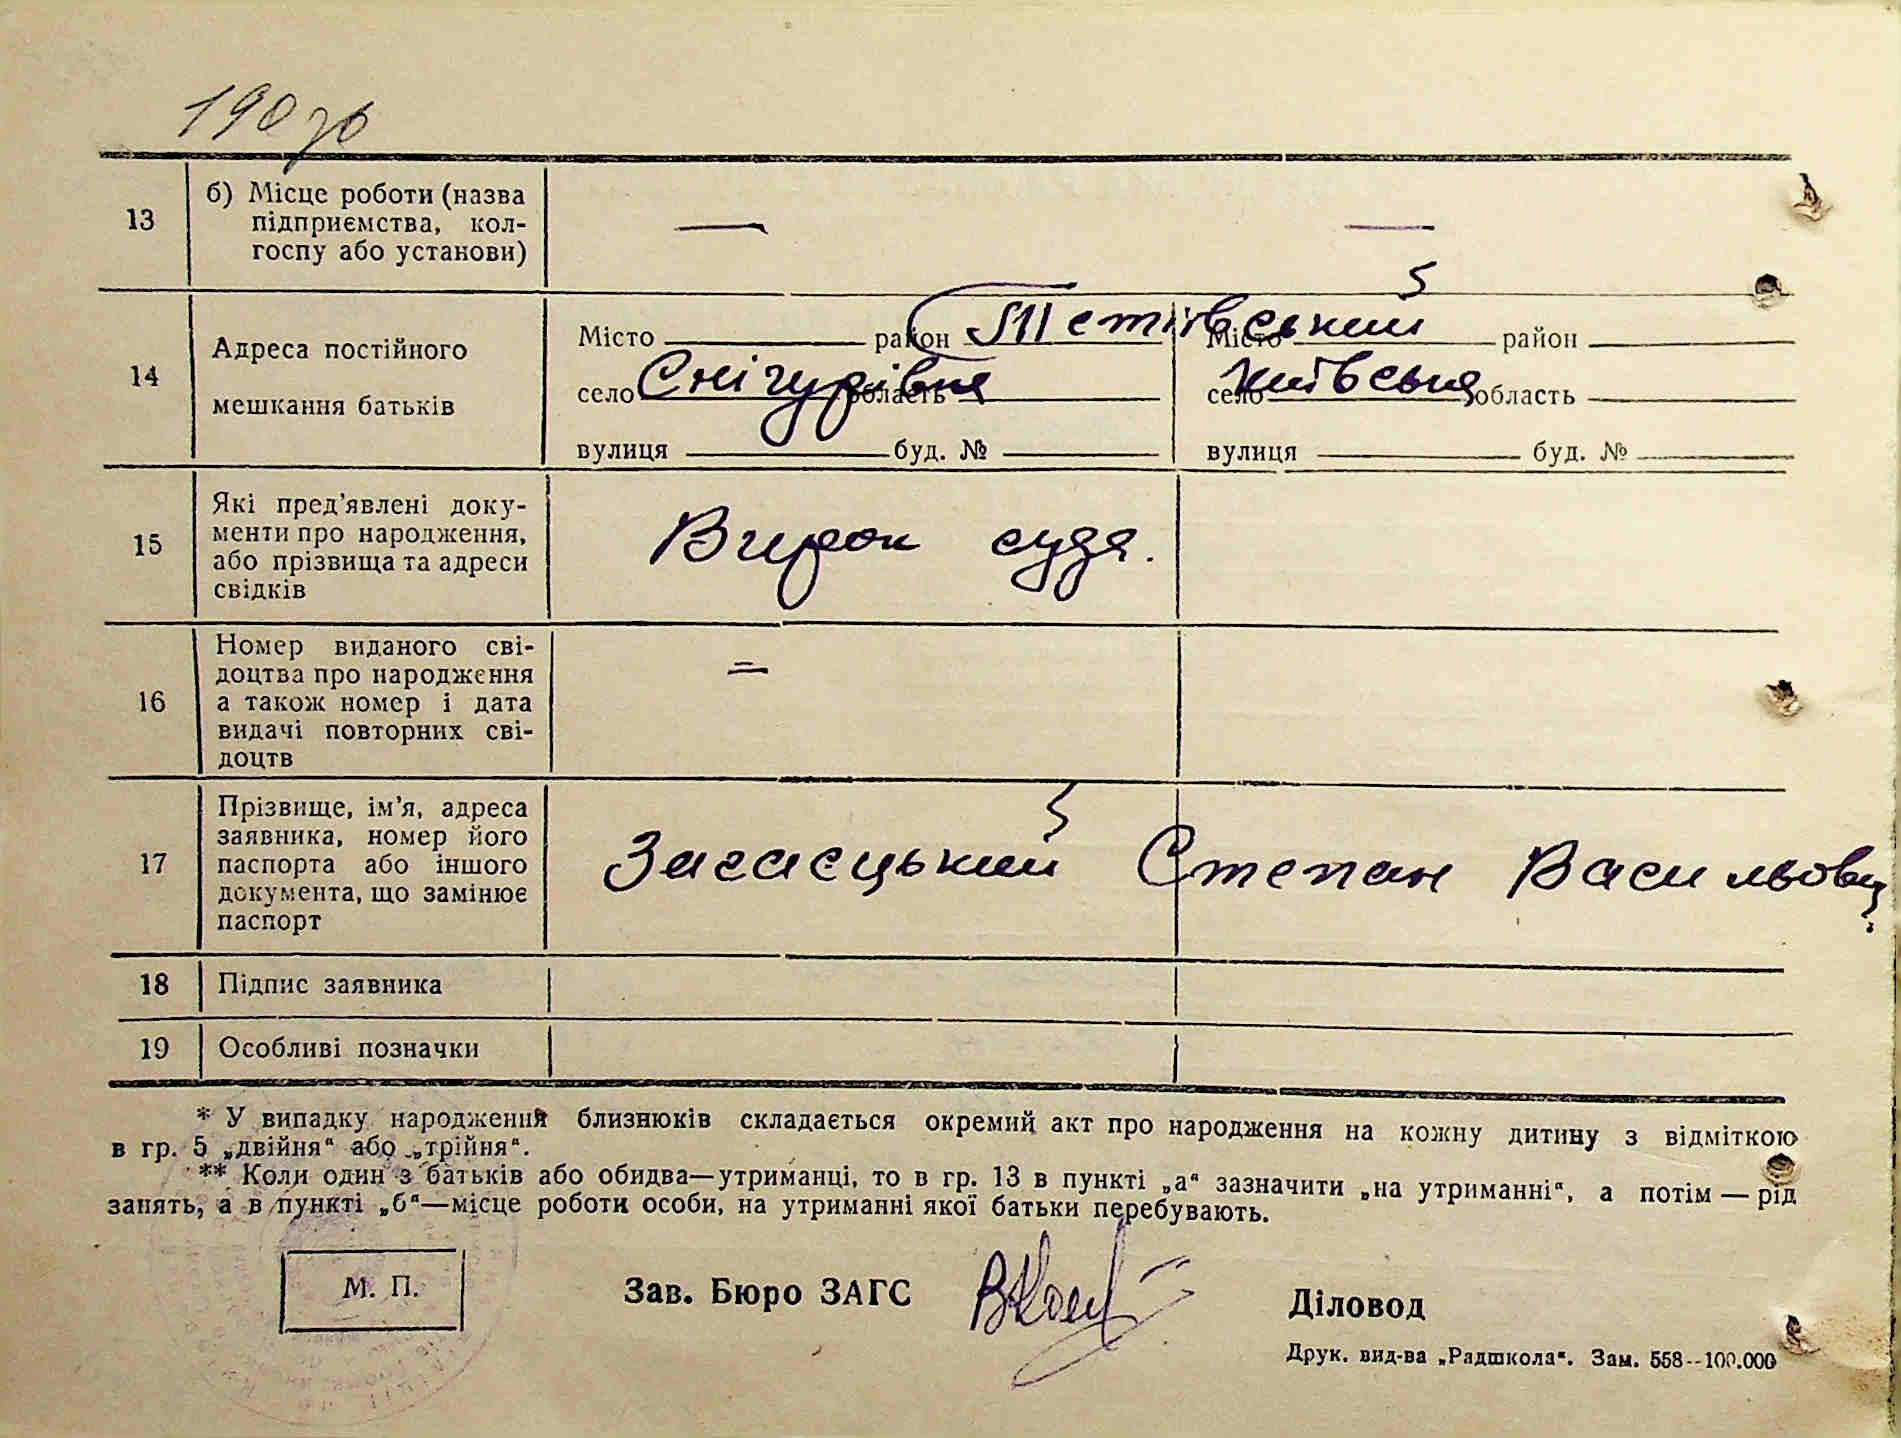 190 зв
13 б) Місце роботи (назва
підприємства, кол-
госпу або установи) — —
14 Адреса постійного
мешкання батьків
Місто район Тетіївський Місто район
село Снігурівка область село Київська область
вулиця буд. № вулиця буд. №
15 Які пред'явлені доку-
менти про народження,
або прізвища та адреси
свідків
Вирок суда.
16 Номер виданого сві-
доцтва про народження
а також номер і дата
видачі повторних сві-
доцтв
=
17 Прізвище, ім'я, адреса
заявника, номер його
паспорта або іншого
документа, що замінює
паспорт
Загаєцький Степан Васильович
18 Підпис заявника
19 Особливі позначки
* У випадку народження близнюків складається окремий акт про народження на кожну дитину з відміткою
в гр. 5 „двійня“ або „трійня“.
** Коли один з батьків або обидва—утриманці, то в гр. 13 в пункті „а“ зазначити „на утриманні“, а потім — рід
занять, а в пункті „б“—місце роботи особи, на утриманні якої батьки перебувають.
М. П. Зав. Бюро ЗАГС Діловод
Друк. вид-ва „Радшкола“. Зам. 558--100.000